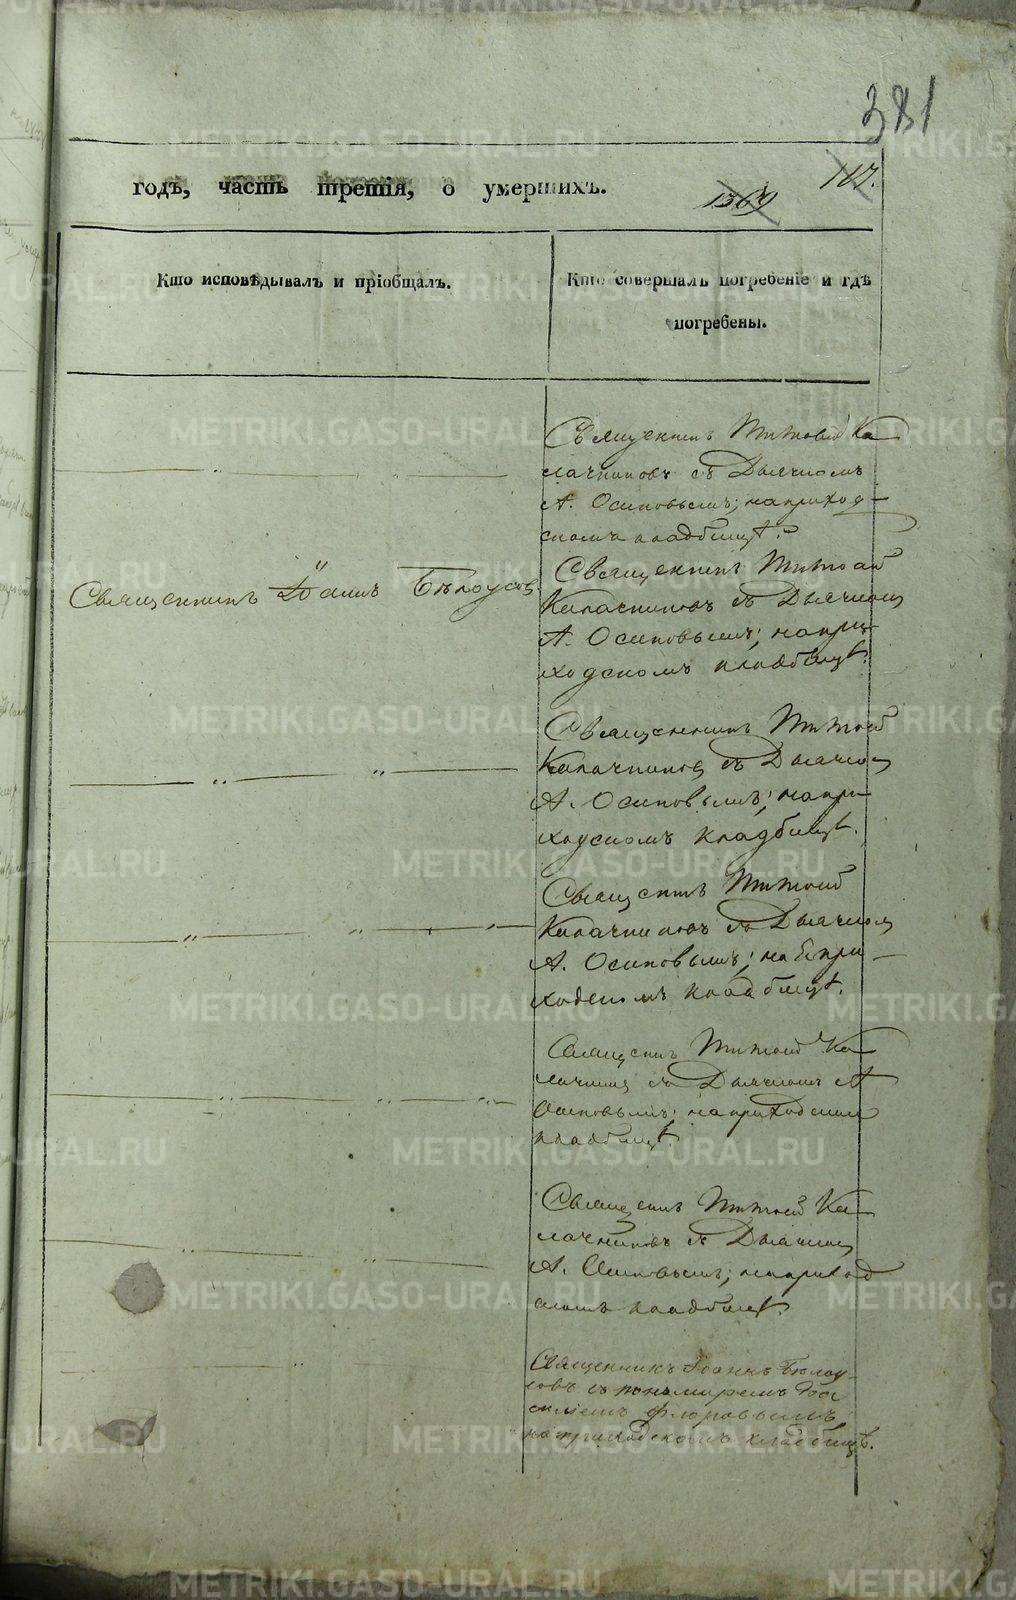 381
117.
годъ, часть третія, о умершихъ.
1369
Кто исповѣдывалъ и пріобщалъ.
Кто совершалъ погребеніе и гдѣ
погребены.
Священникъ Титовъ Ка
лачниковъ съ Дьячкомъ
А. Осиповымъ; на приход-
скомъ кладбищѣ.
Священникъ Іоаннъ Бѣлоусов
Священникъ Титовъ
Калачниковъ съ Дьячком
А. Осиповымъ; на при-
ходскомъ кладбищѣ.
Священникъ Титовъ
Калачников съ Дьячком
А. Осиповымъ; на при-
ходскомъ кладбищѣ.
Священикъ Титовъ
Калачниковъ съ Дьячком
А. Осиповымъ; на при-
ходскомъ кладбищѣ.
Священикъ Титовъ Ка
лачников съ Дьячкомъ А
Осиповымъ; на приходском
кладбищѣ.
Священикъ Титовъ Ка
лачниковъ съ Дьячком
А. Осиповымъ; на приход
скомъ кладбищѣ.
Священникъ Іоаннъ Бѣлоу-
совъ съ пономаремъ
Флоровымъ
на приходскомъ кладбищѣ.
METRIKI.GASO-URAL.RU